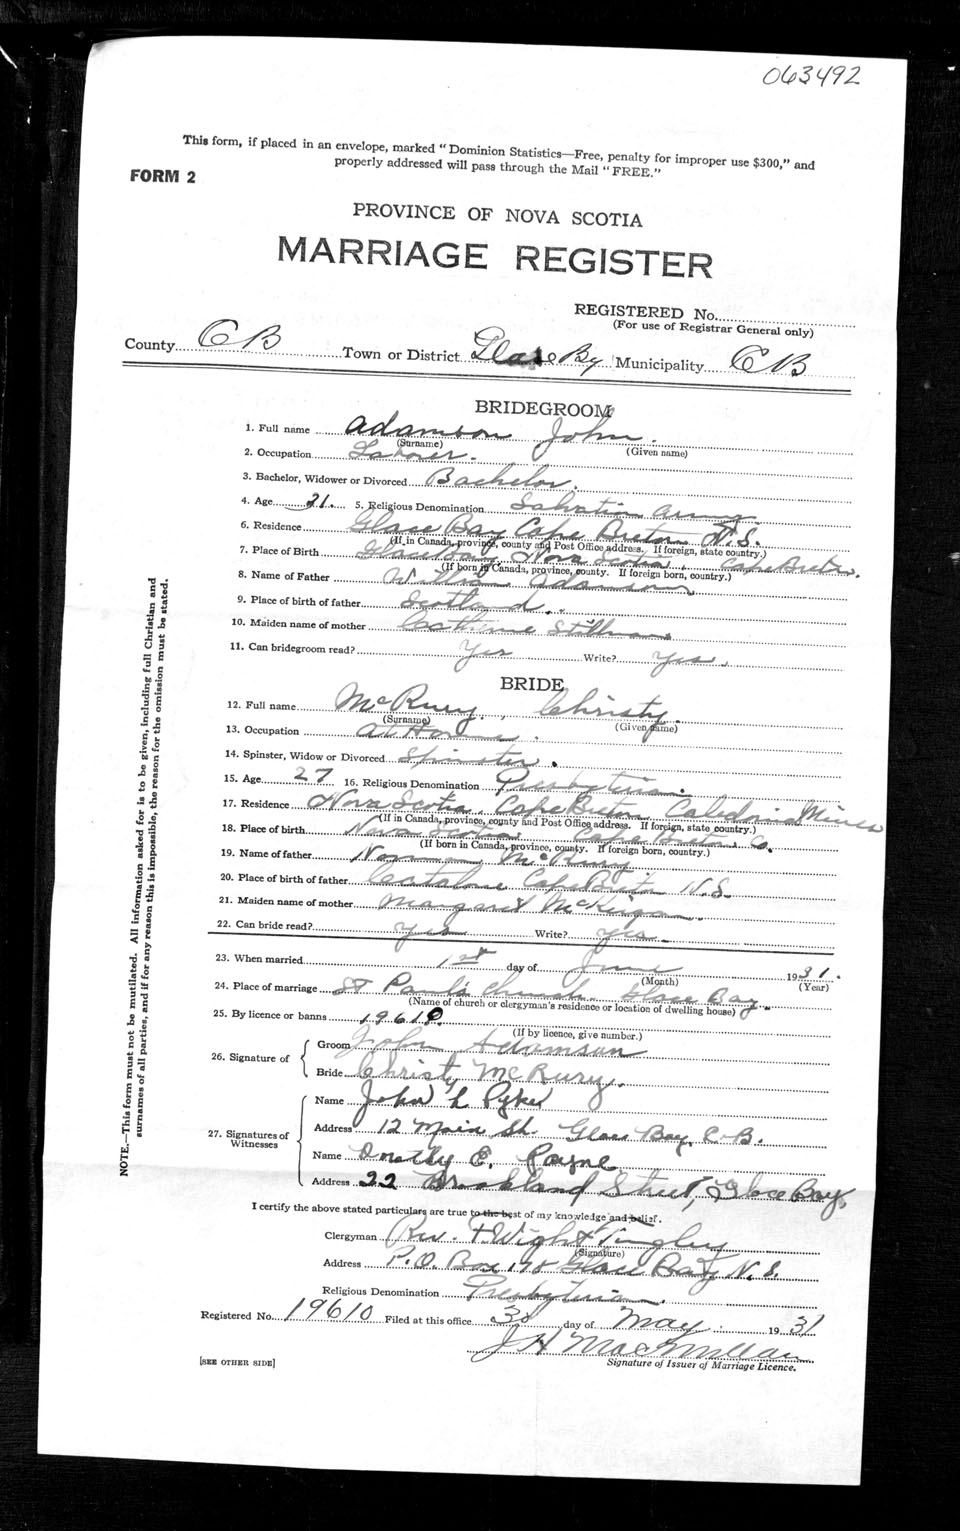 063492
This form, if placed in an envelope, marked "Dominion Statistics—Free, penalty for improper use $300," and
properly addressed will pass through the Mail "FREE."
FORM 2
PROVINCE OF NOVA SCOTIA
MARRIAGE REGISTER
REGISTERED No.
(For use of Registrar General only)
County CB Town or District Glace By Municipality CB
BRIDEGROOM
1. Full name Adamson John.
(Surname) (Given name)
2. Occupation Laborer.
3. Bachelor, Widower or Divorced Bachelor.
4. Age 21. 5. Religious Denomination Salvation Army.
6. Residence Glace Bay Cape Breton N.S.
(If in Canada, province, county and Post Office address. If foreign, state country.)
7. Place of Birth Glace Bay Nova Scotia, Cape Breton.
(If born in Canada, province, county. If foreign born, country.)
8. Name of Father William Adamson
9. Place of birth of father Scotland.
10. Maiden name of mother Catherine Stillman
11. Can bridegroom read? Yes Write? Yes.
BRIDE
12. Full name McRury, Christy.
(Surname) (Given name)
13. Occupation At Home.
14. Spinster, Widow or Divorced Spinster.
15. Age 27 16. Religious Denomination Presbyterian.
17. Residence Nova Scotia, Cape Breton Caledonia Mines
(If in Canada, province, county and Post Office address. If foreign, state country.)
18. Place of birth Nova Scotia Cape Breton Co.
(If born in Canada, province, county. If foreign born, country.)
19. Name of father Norman McRury
20. Place of birth of father Catalone Cape Breton N.S.
21. Maiden name of mother Margaret McKeigan.
22. Can bride read? Yes Write? Yes.
23. When married 1st day of June 1931.
(Month) (Year)
24. Place of marriage St Paul's Church. Glace Bay.
(Name of church or clergyman's residence or location of dwelling house)
25. By licence or banns 19610.
(If by licence, give number.)
26. Signature of Groom John Adamson
Bride Christy McRury.
27. Signatures of Witnesses
Name John L Pyke
Address 12 Main St. Glace Bay, C.B.
Name E. Payne
Address 22 Brookland Street, Glace Bay.
I certify the above stated particulars are true to the best of my knowledge and belief.
Clergyman Rev. Wight Tingley
(Signature)
Address P.O. Box Glace Bay N.S.
Religious Denomination Presbyterian.
Registered No. 19610 Filed at this office 30 day of May 1931
J H MacMillan
Signature of Issuer of Marriage Licence.
[SEE OTHER SIDE]
NOTE.—This form must not be mutilated. All information asked for is to be given, including full Christian and
surnames of all parties, and if for any reason this is impossible, the reason for the omission must be stated.